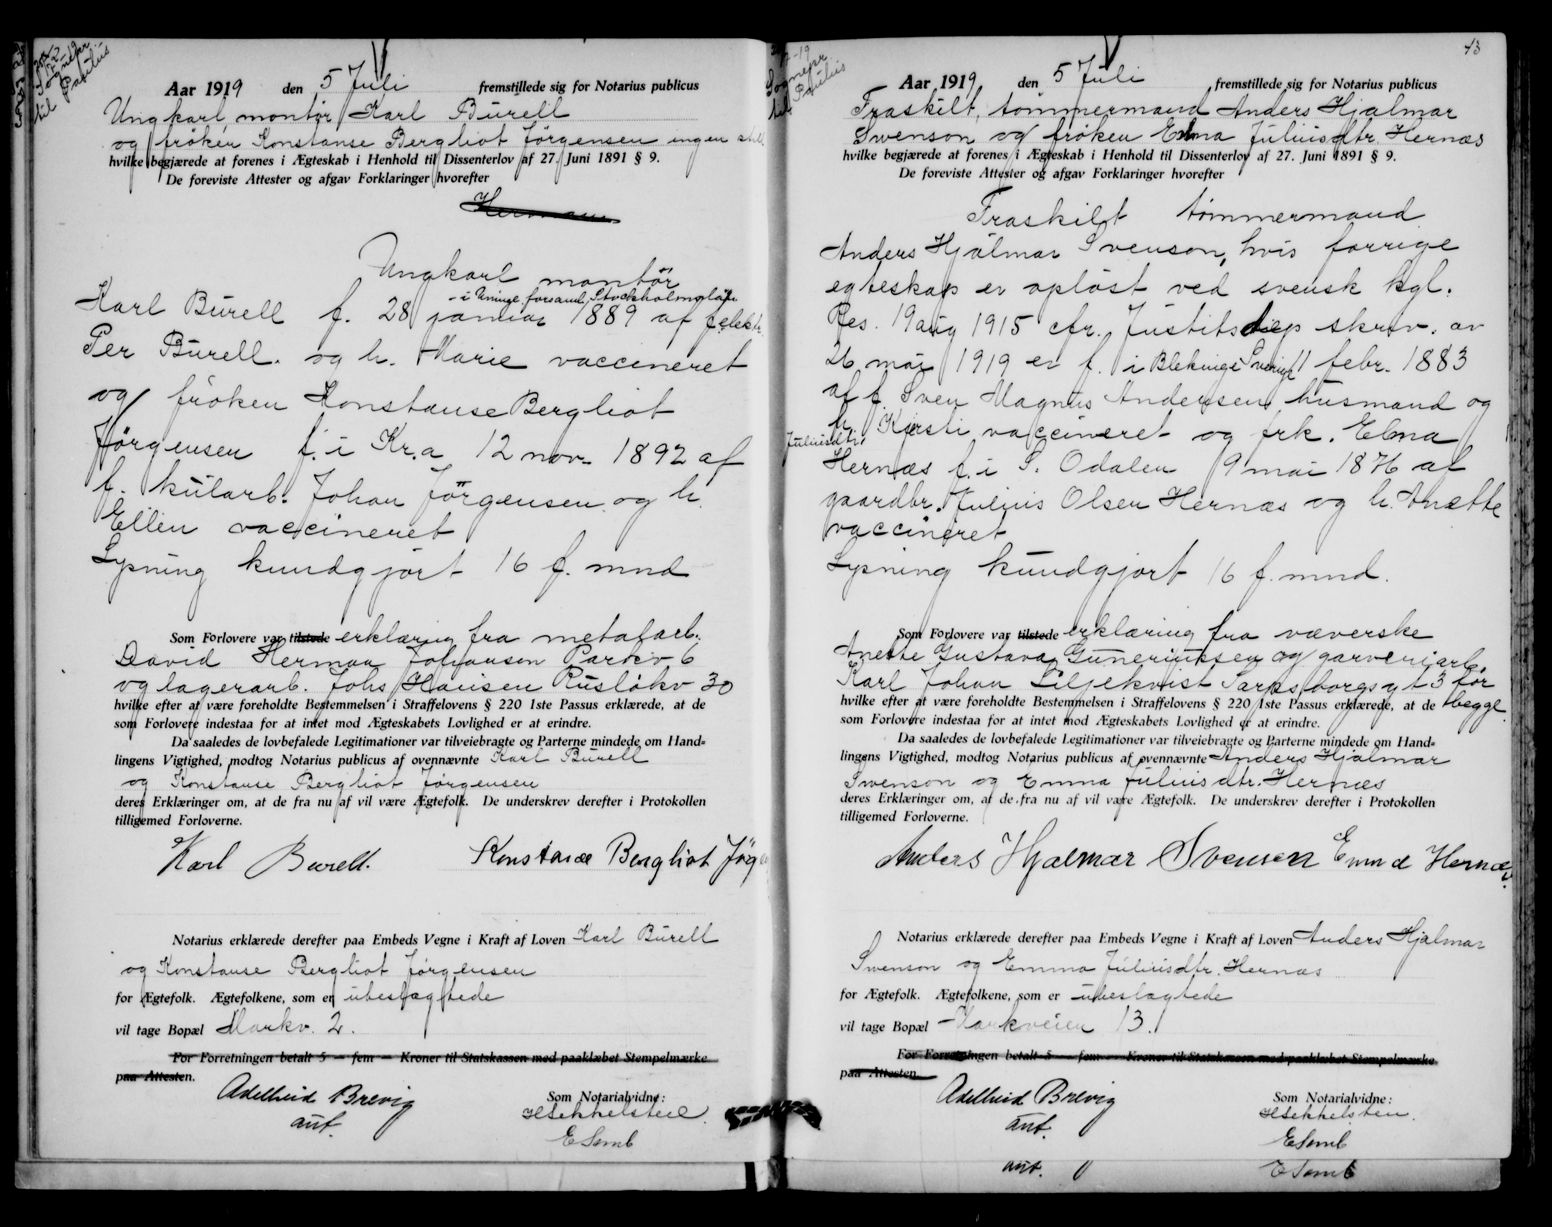 20/12-19
Sognepr
til Paulus
Aar 1919 den 5 Juli fremstillede sig for Notarius publicus
Ungkarl, montör Karl Burell
og fröken Konstanse Bergliot Jörgensen ingen still.
hvilke begjærede at forenes i Ægteskab i Henhold til Dissenterlov af 27. Juni 1891 § 9.
De foreviste Attester og afgav Forklaringer hvorefter
Ungkarl montör
i Uninge forsaml. Stockholmslän
Karl Burell f. 28 januar 1889 af f. elektr.
Per Burell. og h. Marie vaccineret
og fröken Konstanse Bergliot
Jörgensen f. i Kr.a 12 nov. 1892 af
f. kularb. Johan Jörgensen og h.
Ellen vaccineret
Lysning kundgjort 16 f. mnd
Som Forlovere var tilstede erklæring fra metalarb.
David Herman Johansen Parkv 6
og lagerarb. Johs Hansen Ruslökv 30
hvilke efter at være foreholdte Bestemmelsen i Straffelovens § 220 1ste Passus erklærede, at de
som Forlovere indestaa for at intet mod Ægteskabets Lovlighed er at erindre.
Da saaledes de lovbefalede Legitimationer var tilveiebragte og Parterne mindede om Hand=
lingens Vigtighed, modtog Notarius publicus af ovennævnte Karl Burell
og Konstanse Bergliot Jörgensen
deres Erklæringer om, at de fra nu af vil være Ægtefolk. De underskrev derefter i Protokollen
tilligemed Forloverne.
Karl Burell. Konstanse Bergliot Jörg
Notarius erklærede derefter paa Embeds Vegne i Kraft af Loven Karl Burell
og Konstanse Bergliot Jörgensen
for Ægtefolk. Ægtefolkene, som er ubeslægtede
vil tage Bopæl Markv. 2.
For Forretningen betalt 5 — fem — Kroner til Statskassen med paaklæbet Stempelmærke
paa Attesten.
Adelheid Brevig
aut.
Som Notarialvidne:
HSekkelsten
ESemb
43
-19
Sognepr
til Paulus
Aar 1919 den 5 Juli fremstillede sig for Notarius publicus
Fraskilt, tömmermand Anders Hjalmar
Swenson og fröken Emma Juliusdtr. Hernæs
hvilke begjærede at forenes i Ægteskab i Henhold til Dissenterlov af 27. Juni 1891 § 9.
De foreviste Attester og afgav Forklaringer hvorefter
Fraskilt tömmermand
Anders Hjalmar Svenson, hvis forrige
egteskap er oplöst ved svensk kgl.
Res. 19 aug 1915 cfr. Justitsdep skriv. av
26 mai 1919 er f. i Blekinge Sverige 11 febr. 1883
af f. Sven Magnus Andersen husmand og
h. Kjersti vaccineret og frk. Elma
Juliusdtr.
Hernæs f. i S. Odalen 9 mai 1876 af
gaardbr. Julius Olsen Hernæs og h. Anette
vaccineret
Lysning kundgjort 16 f. mnd.
Som Forlovere var tilstede erklæring fra væverske
Anette Gustava Guneriussen og garveriarb.
Karl Johan Liljekvist Sarpsborggt 3 for
begge
hvilke efter at være foreholdte Bestemmelsen i Straffelovens § 220 1ste Passus erklærede, at de
som Forlovere indestaa for at intet mod Ægteskabets Lovlighed er at erindre.
Da saaledes de lovbefalede Legitimationer var tilveiebragte og Parterne mindede om Hand=
lingens Vigtighed, modtog Notarius publicus af ovennævnte Anders Hjalmar
Swenson og Emma Juliusdtr. Hernæs
deres Erklæringer om, at de fra nu af vil være Ægtefolk. De underskrev derefter i Protokollen
tilligemed Forloverne.
Anders Hjalmar Svensen Emma Hernæs.
Notarius erklærede derefter paa Embeds Vegne i Kraft af Loven Anders Hjalmar
Swenson og Emma Juliusdtr. Hernæs
for Ægtefolk. Ægtefolkene, som er ubeslægtede
vil tage Bopæl Markveien 13.
For Forretningen betalt 5 — fem — Kroner til Statskassen med paaklæbet Stempelmærke
paa Attesten
Adelheid Brevig
aut.
Som Notarialvidne:
HSekkelsten.
ESemb
aut.
ESemb